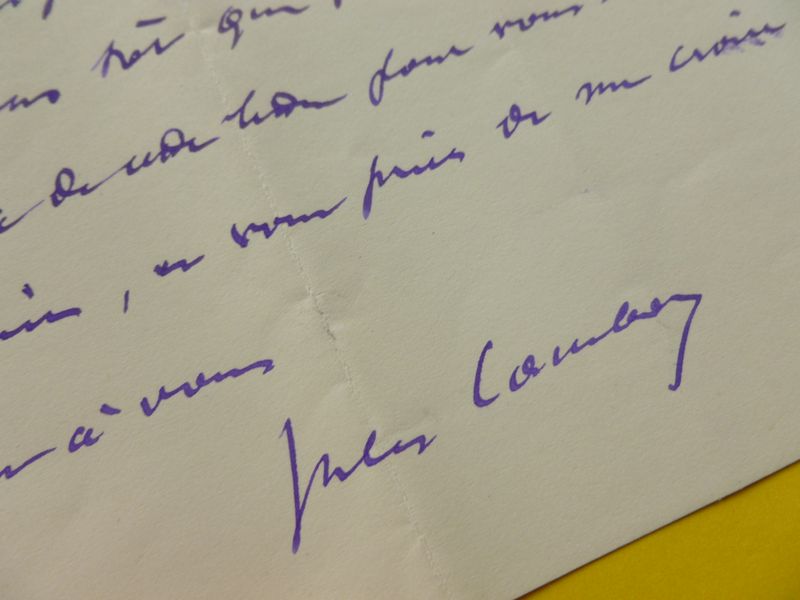 tôt que
de cette lettre pour vous
, et vous prier de me croire
à vous
Jules Cambon